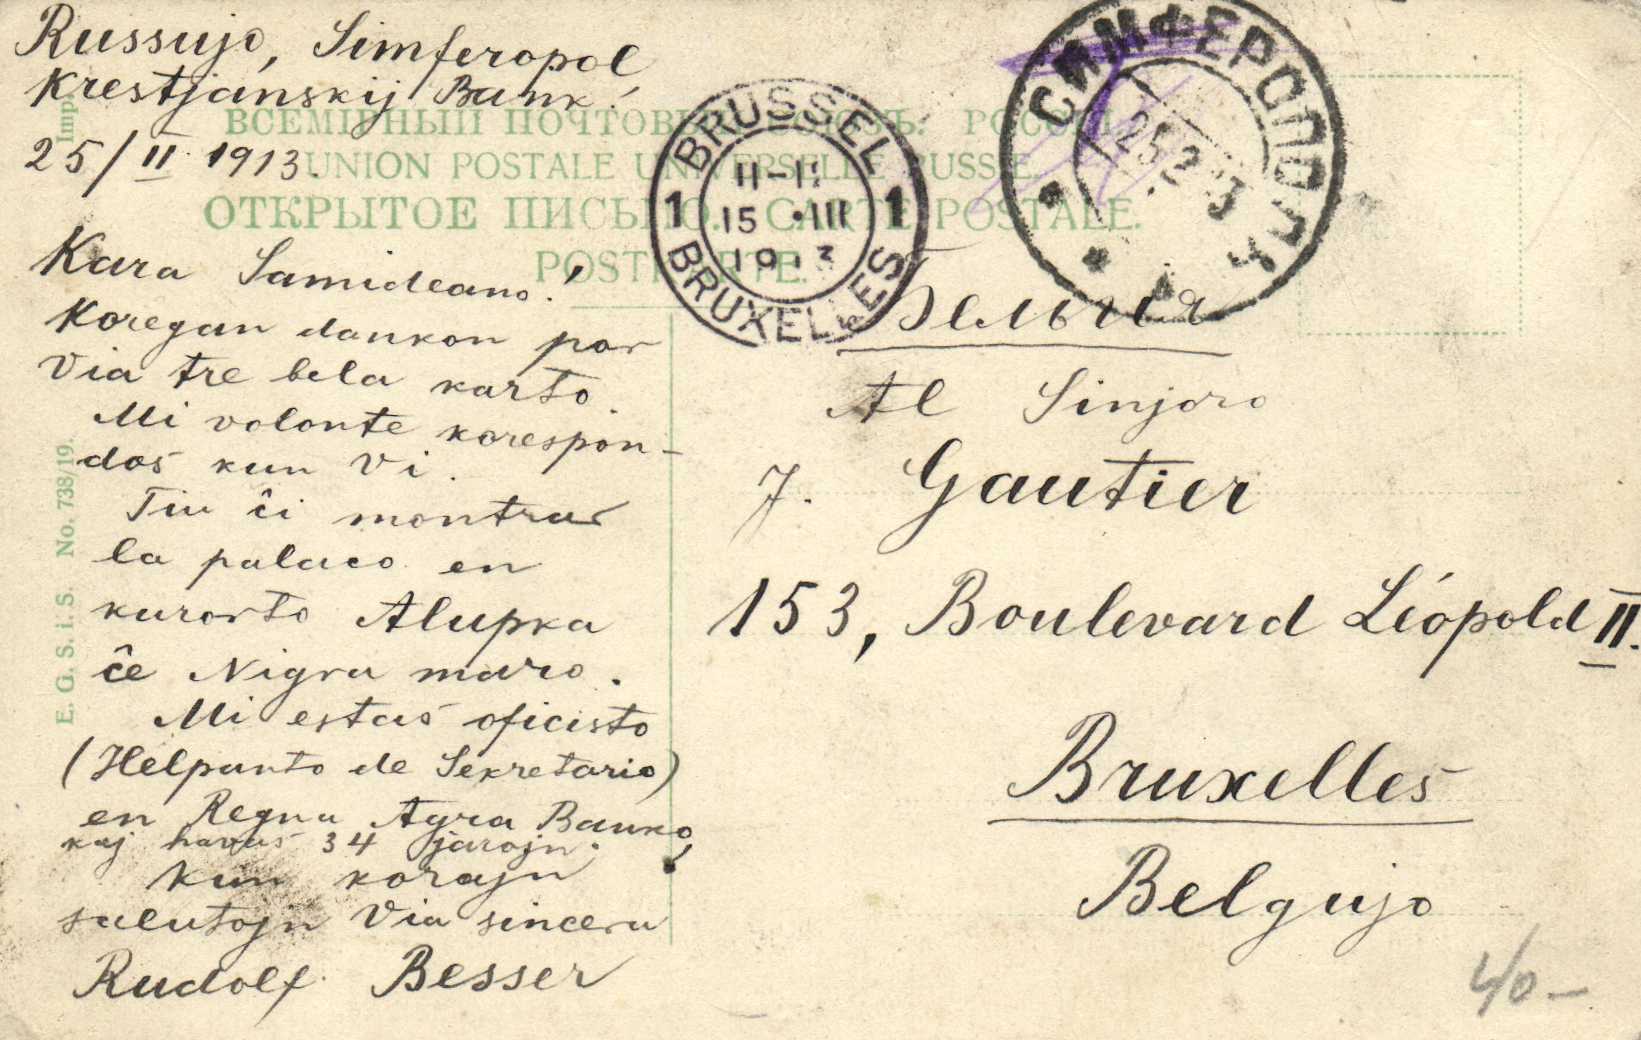 Russujo, Simferopol
Krestjanskij Bank.
25/II 1913.
Kara Samideano!
Koregan dankon por
Via tre bela karto.
Mi volonte korespon-
dos kun Vi.
Tiu ĉi montras
la palaco en
kurorto Alupka
ĉe Nigra maro.
Mi estas oficisto
(Helpanto de Sekretario)
en Regna Agra Banko,
kaj havas 34 jarojn.
Kun korajn
salutojn Via sincera
Rudolf Besser
ВСЕМІРНЫЙ ПОЧТОВЫЙ СОЮЗЪ. РОССІЯ.
UNION POSTALE UNIVERSELLE RUSSIE.
ОТКРЫТОЕ ПИСЬМО. CARTE POSTALE.
POSTKARTE.
E. G. S. i. S. No. 738/19.
Imp
BRUSSEL
1 1
15 III
1913
BRUXELLES
СИМФЕРОПОЛЬ
25 2 13
Бельгия
Al Sinjoro
J. Gautier
153, Boulevard Léopold II.
Bruxelles
Belgujo
40-